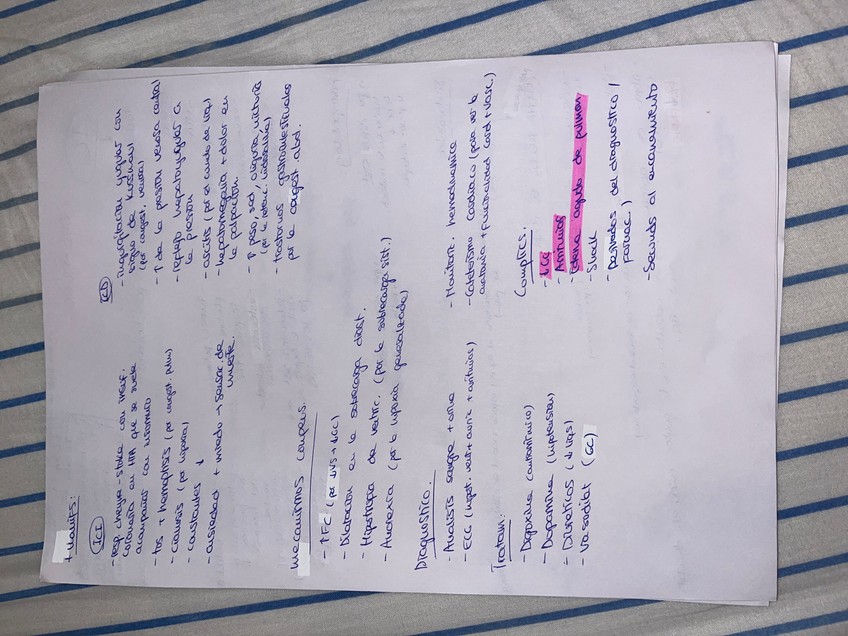 + Manifs:
ICI
- resp. cheyne-stoke con insuf.
coronaria ou HTA que se suele
acompañar con insomnio
- tos + hemoptisis (por congest. pulm)
- cianosis (por hipoxia)
- constantes ↓
- ansiedad + miedo → sensac de
muerte.
ICD
- ingurgitación yugular con
signo de kusmaul
(por congest. venosa)
- ↑ de la presión venosa central
- reflejo hepatoyugular a
la presión
- ascitis (por el
- hepatomegalia + dolor en
la palpación.
- ↑ peso, sed, oliguria, nicturia
(por la potenc.
- trastornos gastrointestinales
por la congest abd.
Mecanismos compens.
- ↑ FC (por ↓VS → ↓GC)
- Dilatación en la sobrecarga diast.
- Hipertrofia de ventríc. (por la sobrecarga sist.)
- Anorexia (por la hipoxia generalizada)
Diagnóstico.
- Analisis sangre + orina
- ECG (hipert. vent + auric + arritmias)
- Monitoriz. hemodinámica
- Cateterismo cardiaco (para ver la
anatomía + funcionalidad card + vasc.)
Tratam:
- Digoxina
- Dopamina (hipotensión)
- Diuréticos
- Vasodilat (GC)
Complics.
- ↓GC
- Arritmias
- Edema agudo de pulmón
- Shock
- Derivados del diagnóstico /
- Secund. al encamamiento